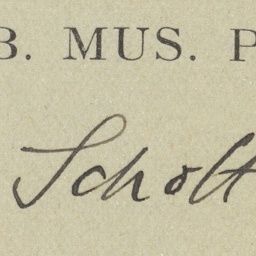 B. MUS. P
Schott